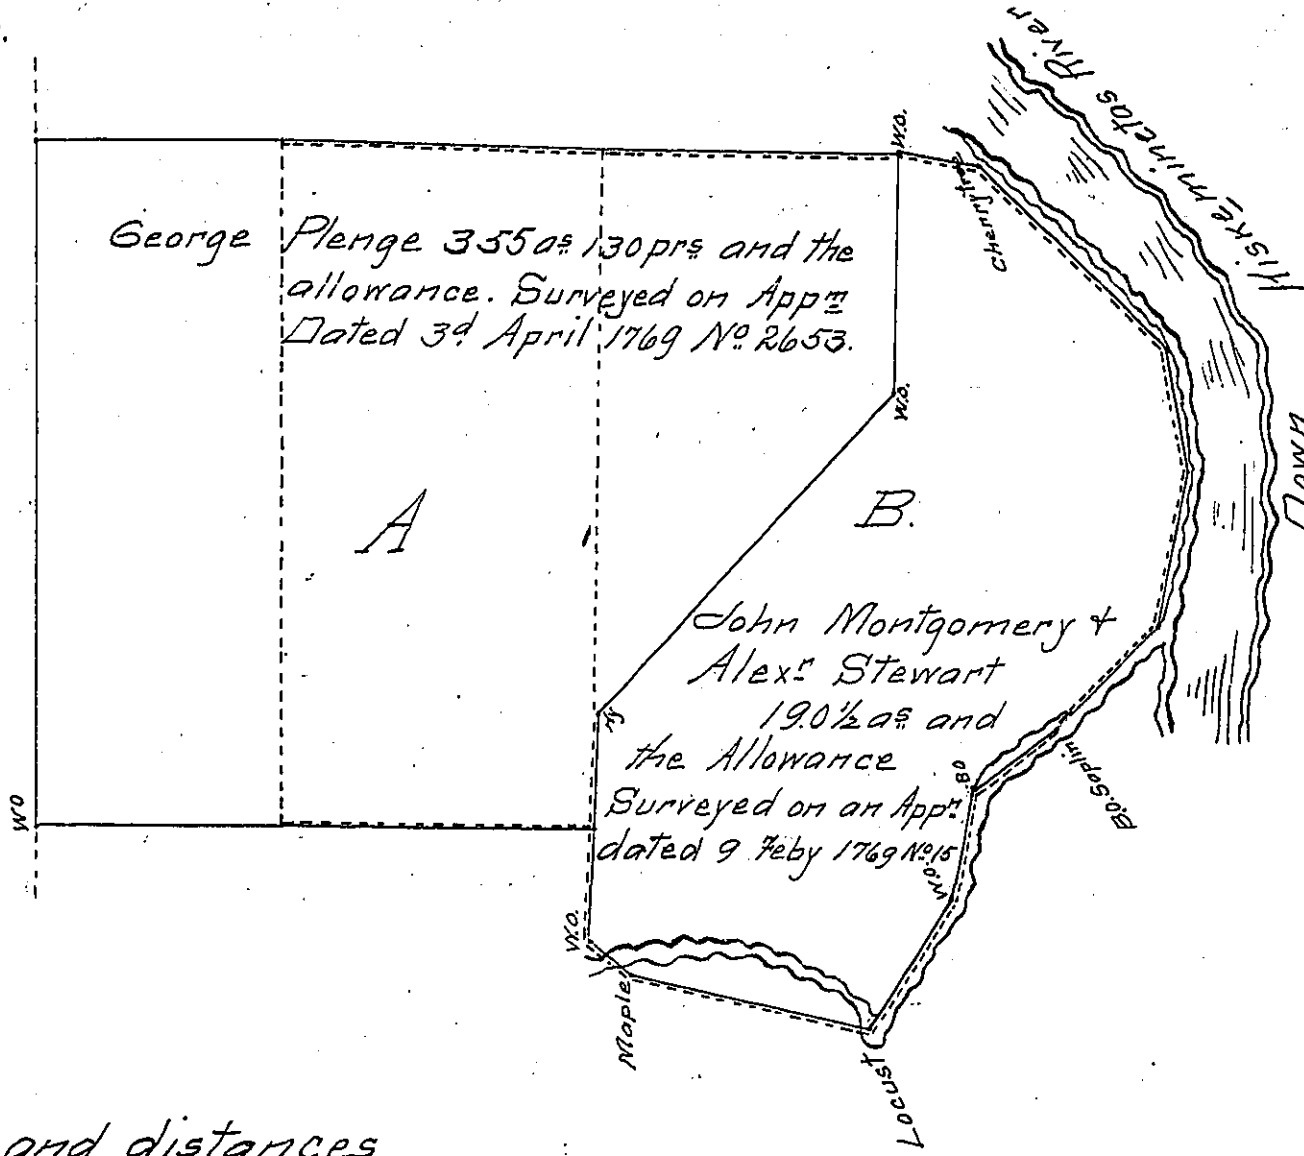 Kiskeminetas River
Down
W.O.
Cherrytree
George Plenge 355 as 130 prs and the
allowance. Surveyed on Appn
Dated 3d April 1769 No 2653.
W.O.
A
B.
John Montgomery &
Alexr Stewart
190½ as and
the Allowance
Surveyed on an Appn
dated 9 Feby 1769 No 15
B.O.
B.O. Saplin
W.O.
W.O.
W.O.
Maple
Locust
and distances